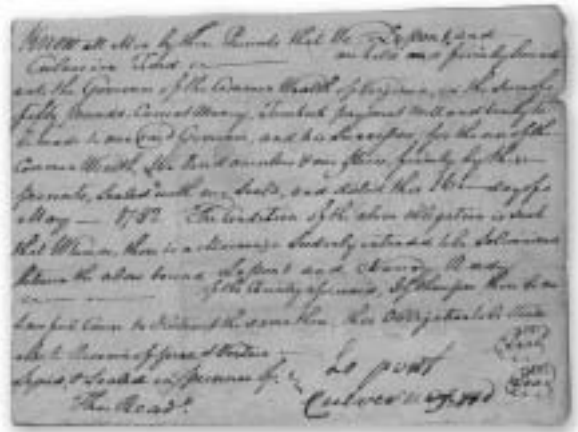 Know all Men by these Presents that We Le pont, and
Culverin Ford are held and firmly bound
unto the Governor of the Common Wealth of Virginia, in the sum of
fifty Pounds, Current Money, To which payment well and truly to
be made to our said Governor, and his Successors, for the use of the
Common Wealth, We bind ourselves & our Heirs, firmly by these
presents, Sealed with our Seals, and dated this 16th day of
May 1782 The Condition of the above Obligation is such
that Whereas there is a Marriage Suddenly intended to be Solemnized
Between the above bound Le pont and Nancy
of the County aforesaid, If therefore there be no
Lawful Cause to Obstruct the same then this Obligation to be Void
else to Remain in force & Virtue
Signed & Sealed in presence of
Le pont Seal
Culverin Ford Seal
Tho Read